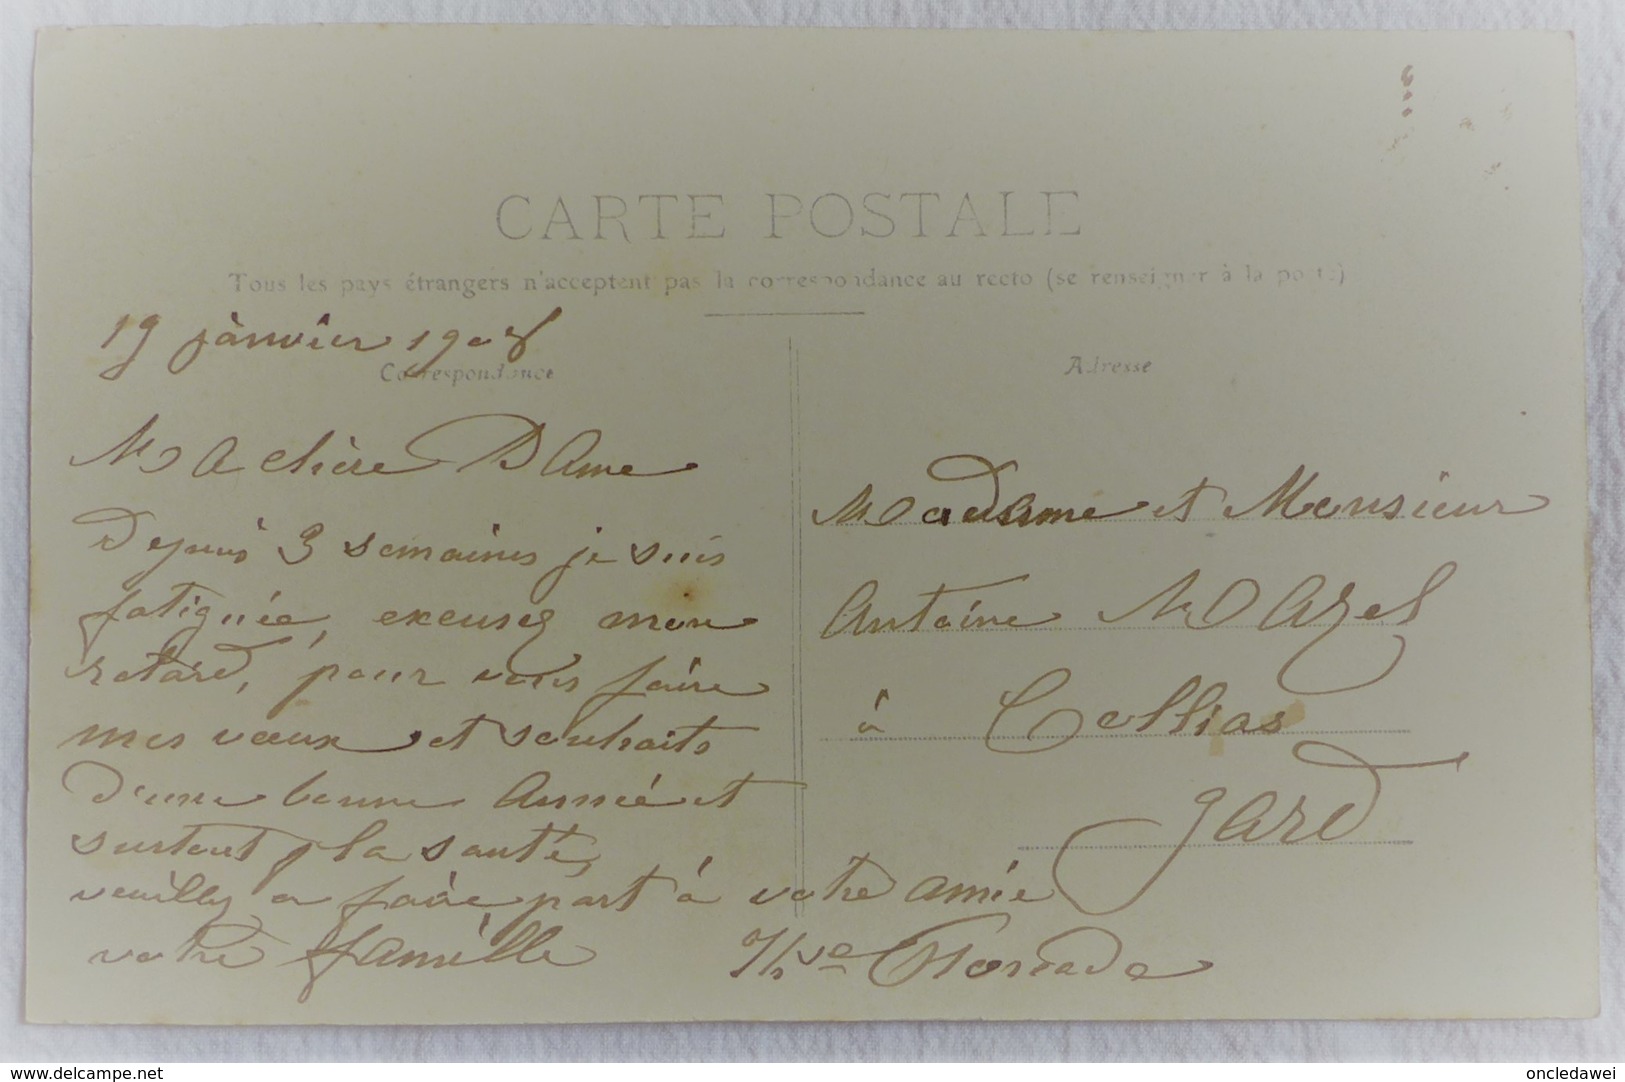 CARTE POSTALE
Tous les pays étrangers n'acceptent pas la correspondance au recto (se renseigner à la poste)
19 janvier 1908
Correspondance
Ma chère Dame
Depuis 3 semaines je suis
fatiguée, excusez mon
retard, pour vous faire
mes vœux et souhaits
d'une bonne Année et
surtout la santé,
veuillez en faire part à
votre famille
votre amie
Vve
Adresse
Madame et Monsieur
Antoine Mazel
à Collias
Gard
www.delcampe.net
oncledawei